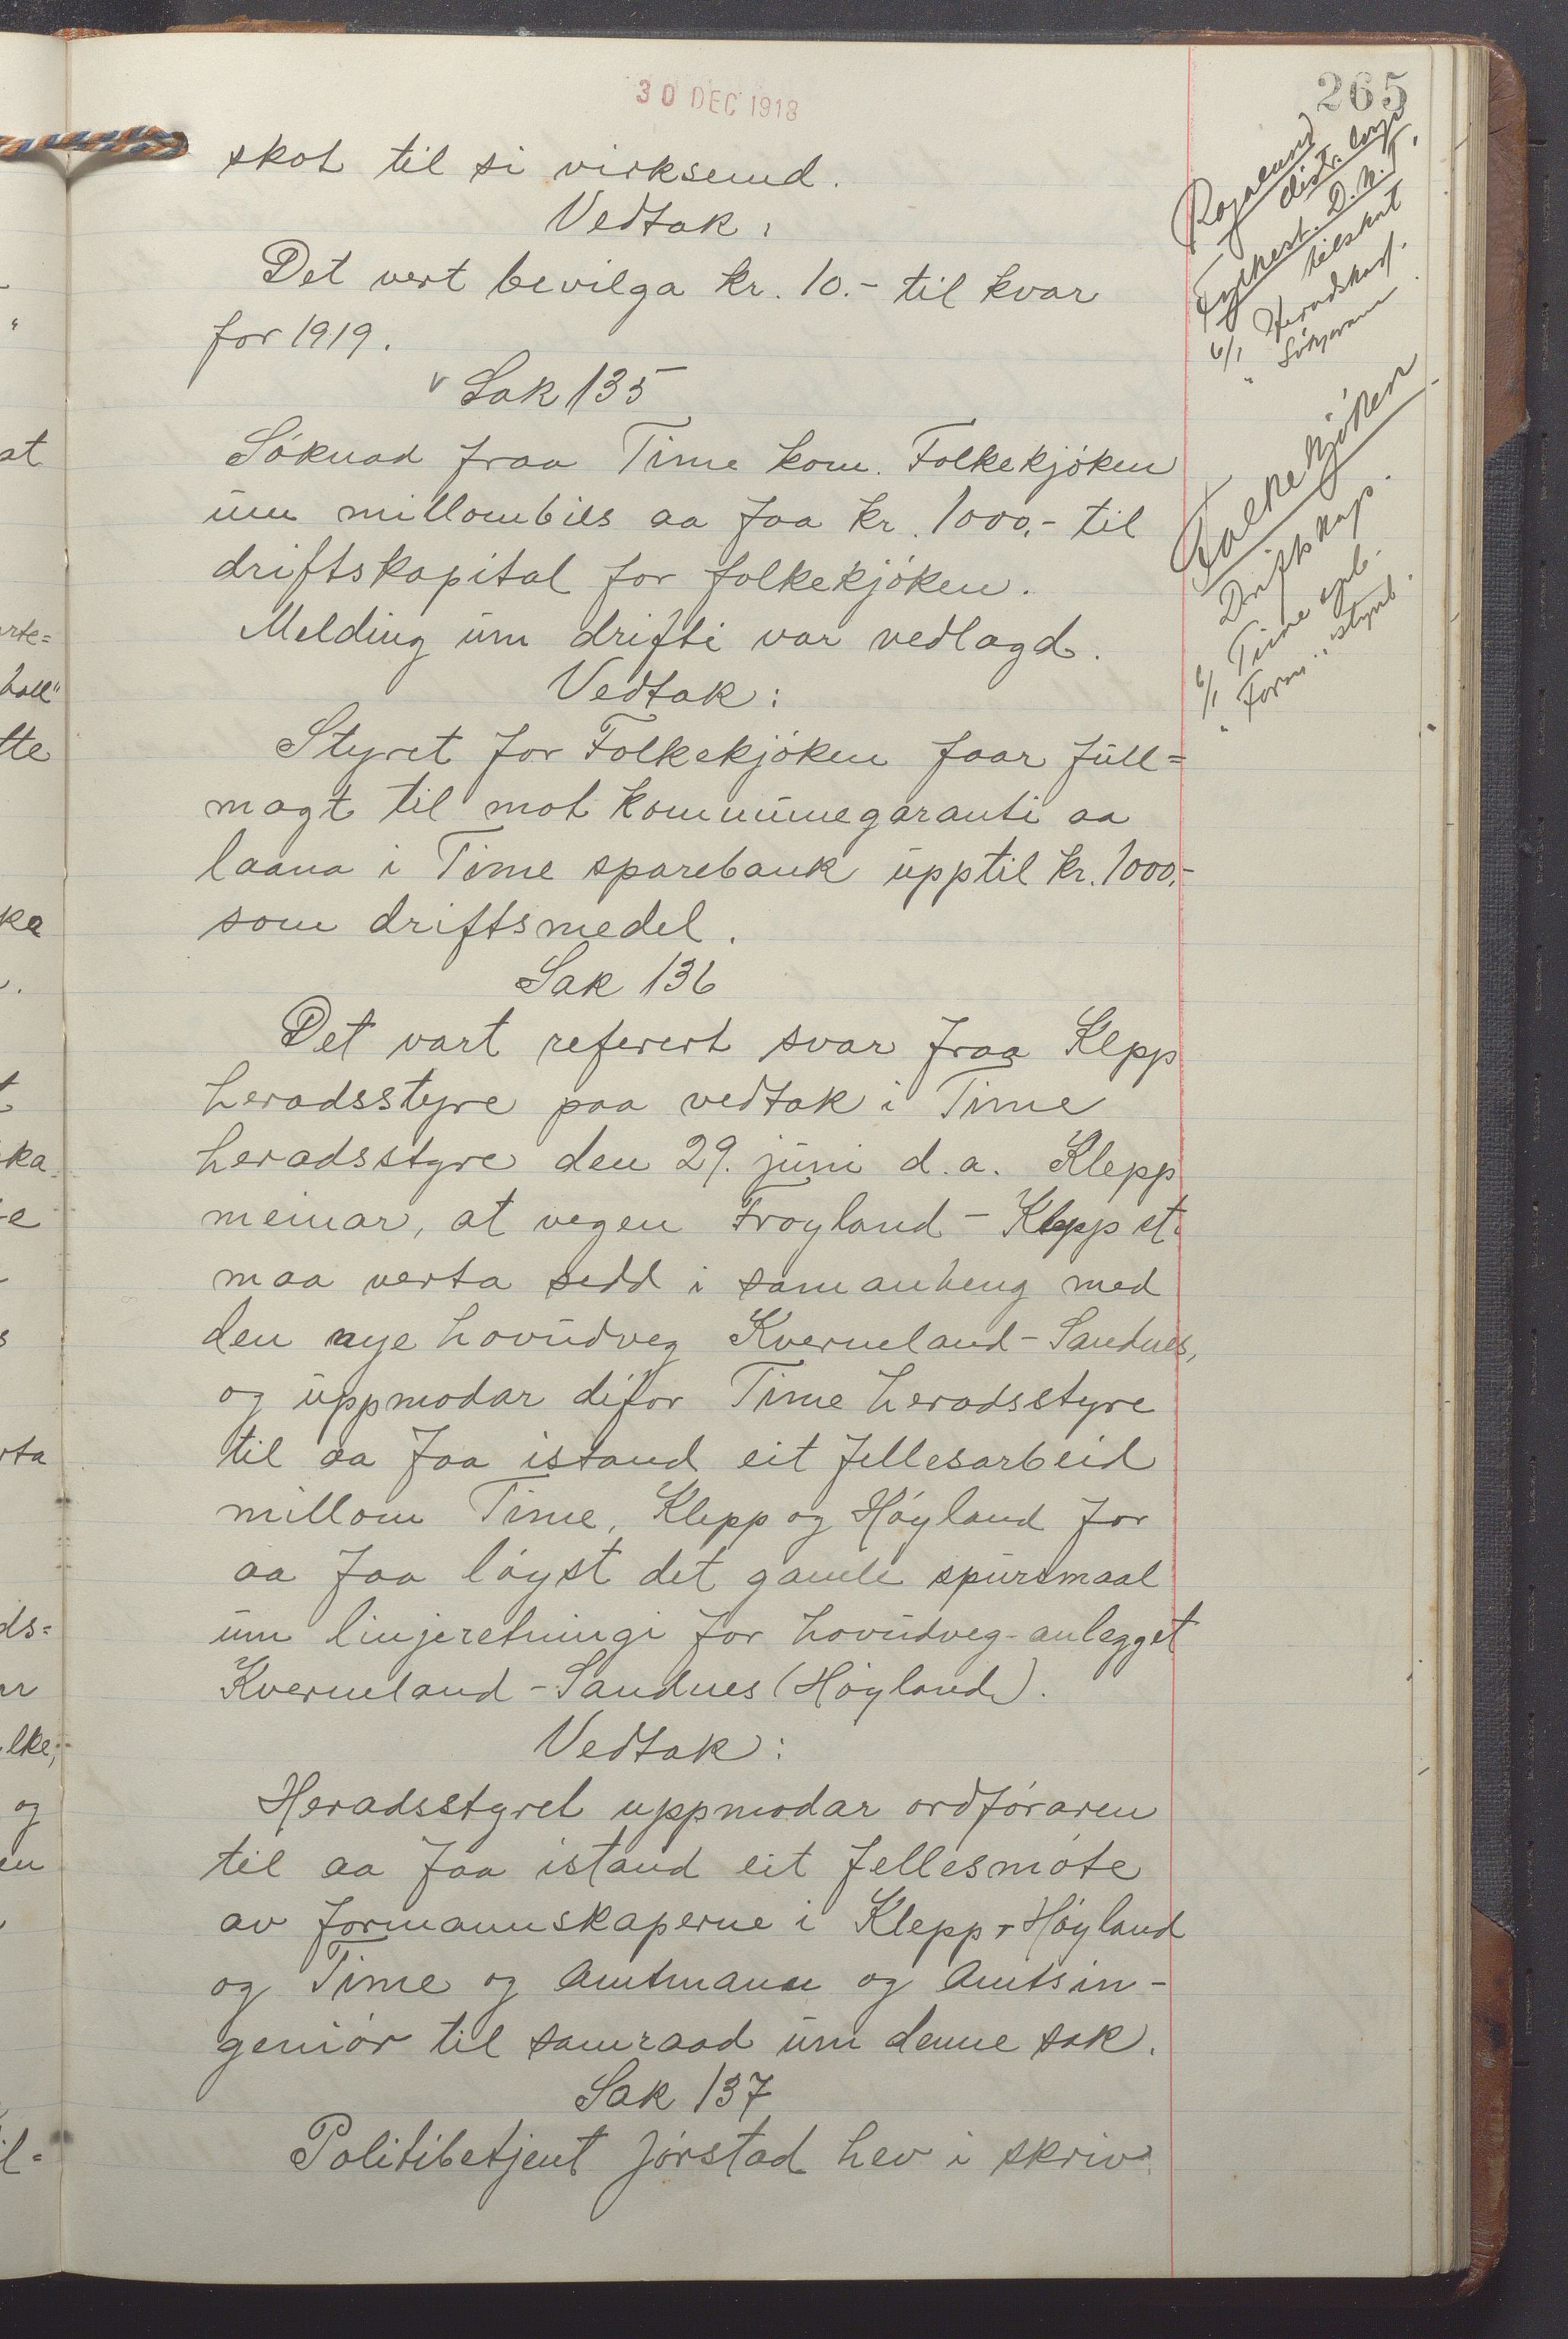 265
30 DEC 1918
skot til si virksemd.
Vedtak:
Det vert bevilga kr. 10.- til kvar
for 1919.
v Sak 135
Søknad fraa Time kom. Folkekjøken
um millombils aa faa kr. 1000,- til
driftskapital for folkekjøken.
Melding um drifti var vedlagd.
Vedtak:
Styret for Folkekjøken faar full=
magt til mot kommunegaranti aa
laana i Time sparebank upptil kr. 1000,-
som driftsmedel.
Sak 136
Det vart referert svar fraa Klepp
heradsstyre paa vedtak i Time
heradsstyre den 29. juni d.a. Klepp
meinar, at vegen Frøyland - Klepp st.
maa verta sedd i samanheng med
den nye hovudveg Kverneland - Sandnes,
og uppmodar difor Time heradsstyre
til aa faa istand eit fellesarbeid
millom Time, Klepp og Høyland for
aa faa løyst det gamle spursmaal
um linjeretningi for hovudveg-anlegget
Kverneland - Sandnes (Høyland).
Vedtak:
Heradsstyret uppmodar ordføraren
til aa faa istand eit fellesmøte
av formannskaperne i Klepp, Høyland
og Time og Amtmann og Amtsin-
geniør til samraad um denne sak.
Sak 137
Politibetjent Jørstad hev i skriv
Rogaland
distr. losje
Fylkest. D.N.T.
tilskot
6/1 Heradskass.
" Søkjarane
Folkekjøken
Driftskap.
6/1 Time spb.
" Form. styret
at
rte=
hall"
tte
ka
ds=
lke,
og
en
il=